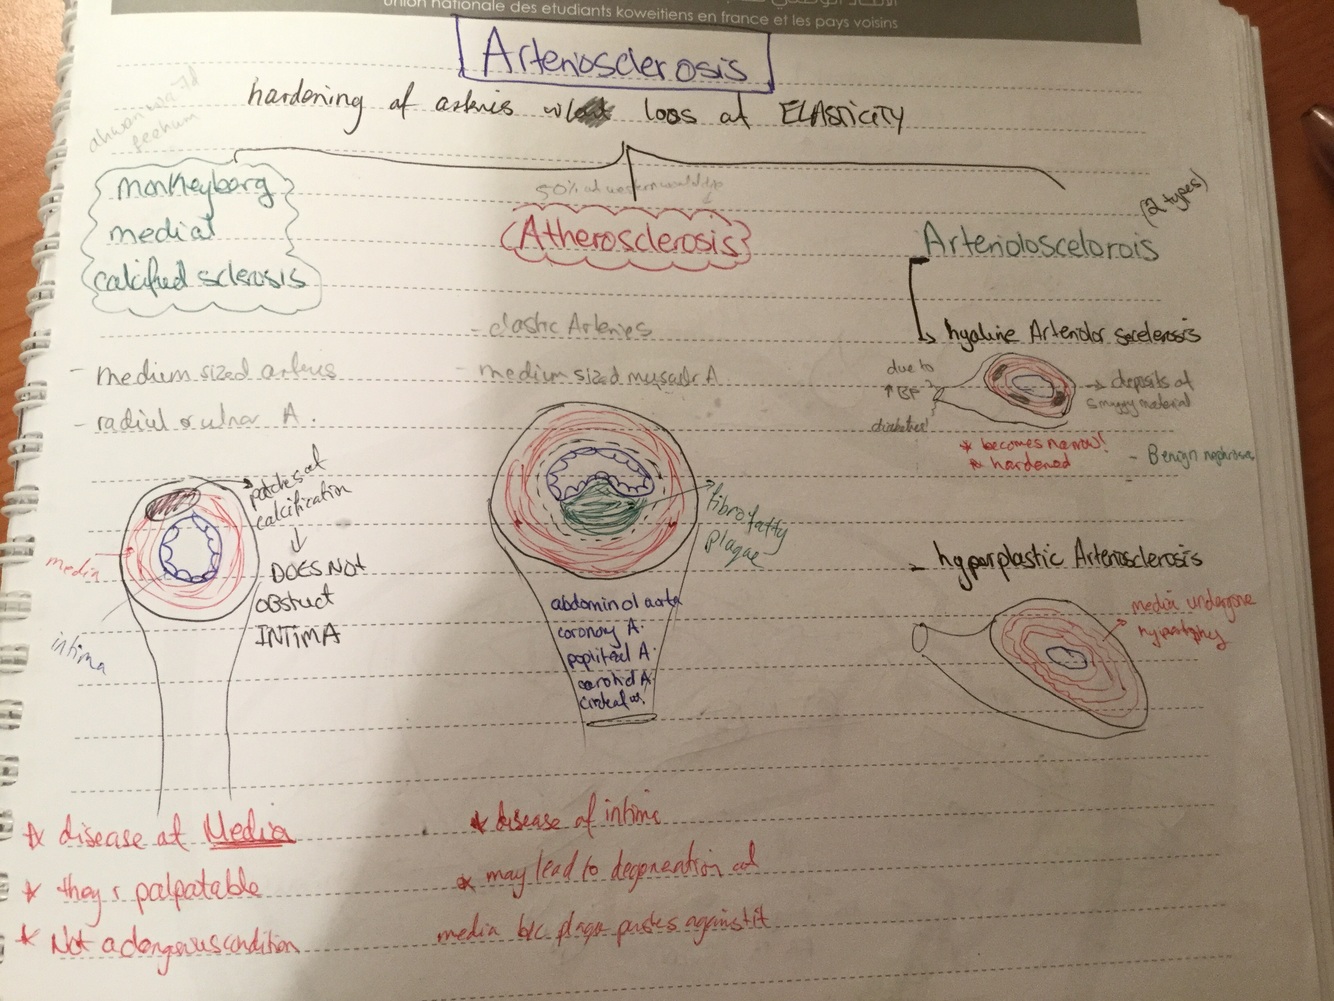 union nationale des etudiants koweitiens en france et les pays voisins
Arteriosclerosis
hardening of arteries loos of ELASTICITY
ahwan
feehum
monkeyberg
medial
calcified sclerosis
50% of western world
Atherosclerosis
(2 types)
Arterioloscelorois
- elastic Arteries
- medium sized arteries
- medium sized muscular A.
- radial or ulnar A.
hyaline Arteriolor scelerosis
due to
↑ BP
diabetes!
→ deposits of
smuggy material
* becomes narrow!
* hardened
- Benign nephros
patches of
calcification
↓
DOES NOT
obstuct
INTIMA
media
intima
fibrofatty
plaque
abdominal aorta
coronary A.
popliteal A.
carotid A.
- hyperplastic Arteriosclerosis
media undergone
hypertrophy
* disease of Media
* they r palpatable
* Not a dangerous condition
* disease of intima
* may lead to degeneration of
media b/c plaqe pushes against it